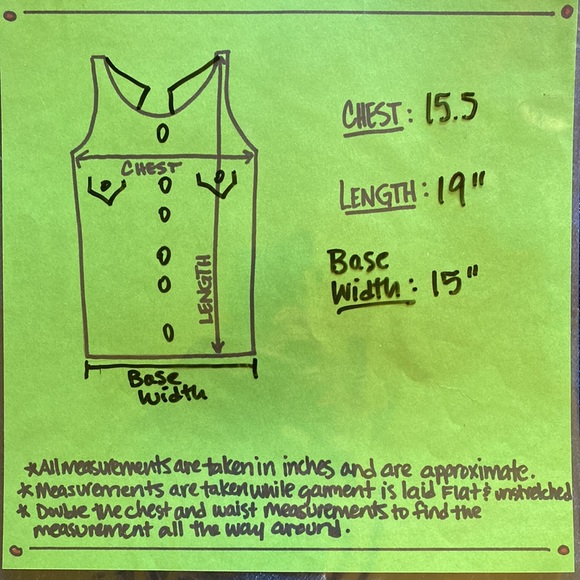 CHEST: 15.5
CHEST
LENGTH: 19"
LENGTH
Base
Width: 15"
Base
Width
*All measurements are taken in inches and are approximate.
* Measurements are taken while garment is laid Flat & unstretched
* Double the chest and waist measurements to find the
measurement all the way around.